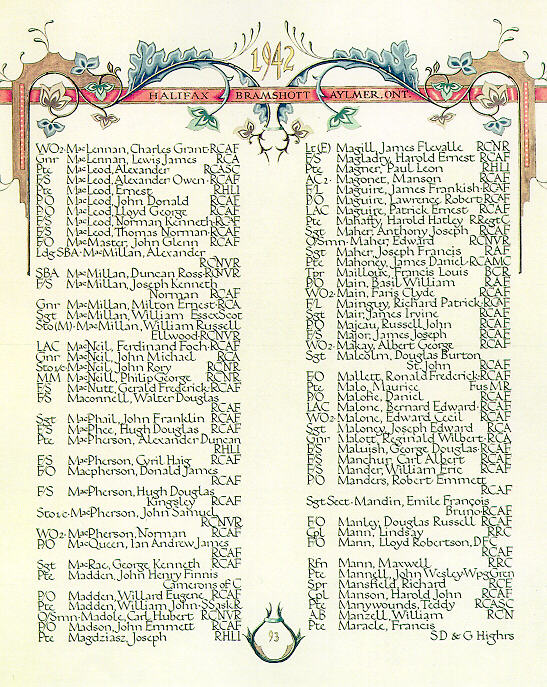 1942
HALIFAX BRAMSHOTT AYLMER, ONT.
WO2 MacLennan, Charles Grant RCAF
Gnr MacLennan, Lewis James RCA
Pte MacLeod, Alexander RCASC
F/S MacLeod, Alexander Owen RCAF
Pte MacLeod, Ernest RHLI
P/O MacLeod, John Donald RCAF
P/O MacLeod, Lloyd George RCAF
F/S MacLeod, Norman Kenneth RCAF
F/S MacLeod, Thomas Norman RCAF
F/O MacMaster, John Glenn RCAF
Ldg SBA MacMillan, Alexander
RCNVR
SBA MacMillan, Duncan Ross RCNVR
F/S MacMillan, Joseph Kenneth
Norman RCAF
Gnr MacMillan, Milton Ernest RCA
Sgt MacMillan, William Essex Scot
Sto(M) MacMillan, William Russell
Ellwood RCNVR
LAC MacNeil, Ferdinand Foch RCAF
Gnr MacNeil, John Michael RCA
Sto1c MacNeil, John Rory RCNR
MM MacNeill, Philip George RCNR
F/S MacNutt, Gerald Frederick RCAF
F/S Maconnell, Walter Douglas
RCAF
Sgt MacPhail, John Franklin RCAF
F/S MacPhee, Hugh Douglas RCAF
Pte MacPherson, Alexander Duncan
RHLI
F/S MacPherson, Cyril Haig RCAF
F/O Macpherson, Donald James
RCAF
F/S MacPherson, Hugh Douglas
Kingsley RCAF
Sto2c MacPherson, John Samuel
RCNVR
WO2 MacPherson, Norman RCAF
P/O MacQueen, Ian Andrew James
RCAF
Sgt MacRae, George Kenneth RCAF
Pte Madden, John Henry Finnis
Camerons of C
P/O Madden, Willard Eugene RCAF
Pte Madden, William John S Sask R
O/Smn Madole, Carl Hubert RCNVR
P/O Madson, John Emmett RCAF
Pte Magdziasz, Joseph RHLI
Lt(E) Magill, James Flevalle RCNR
F/S Magladry, Harold Ernest RCAF
Pte Magner, Paul Leon RHLI
AC2 Magonet, Manson RCAF
F/L Maguire, James Frankish RCAF
P/O Maguire, Lawrence Robert RCAF
LAC Maguire, Patrick Ernest RCAF
Pte Mahaffy, Harold Hatley R Regt C
Sgt Maher, Anthony Joseph RCAF
O/Smn Maher, Edward RCNVR
Sgt Maher, Joseph Francis RAF
Pte Mahoney, James Daniel RCAMC
Tpr Mailloux, Francis Louis BCR
P/O Main, Basil William RAF
WO2 Main, Faris Clyde RCAF
F/L Mainguy, Richard Patrick RCAF
Sgt Mair, James Irvine RCAF
P/O Majeau, Russell John RCAF
F/S Major, James Joseph RCAF
WO2 Makay, Albert George RCAF
Sgt Malcolm, Douglas Burton
St. John RCAF
F/O Mallett, Ronald Frederick RCAF
Pte Malo, Maurice Fus MR
P/O Malofie, Daniel RCAF
LAC Malone, Bernard Edward RCAF
WO2 Malone, Edward Cecil RCAF
Sgt Maloney, Joseph Edward RCA
Gnr Malott, Reginald Wilbert RCA
F/S Maluish, George Douglas RCAF
F/S Manchur, Carl Albert RCAF
F/S Mander, William Eric RCAF
P/O Manders, Robert Emmett
RCAF
Sgt Sect Mandin, Emile François
Bruno RCAF
F/O Manley, Douglas Russell RCAF
Cpl Mann, Lindsay RRC
F/O Mann, Lloyd Robertson, DFC
RCAF
Rfn Mann, Maxwell RRC
Pte Mannell, John Wesley Wpg Gren
Spr Mansfield, Richard RCE
Cpl Manson, Harold John RCAF
Pte Manywounds, Teddy RCASC
AB Manzell, William RCN
Pte Maracle, Francis
SD & G Highrs
93